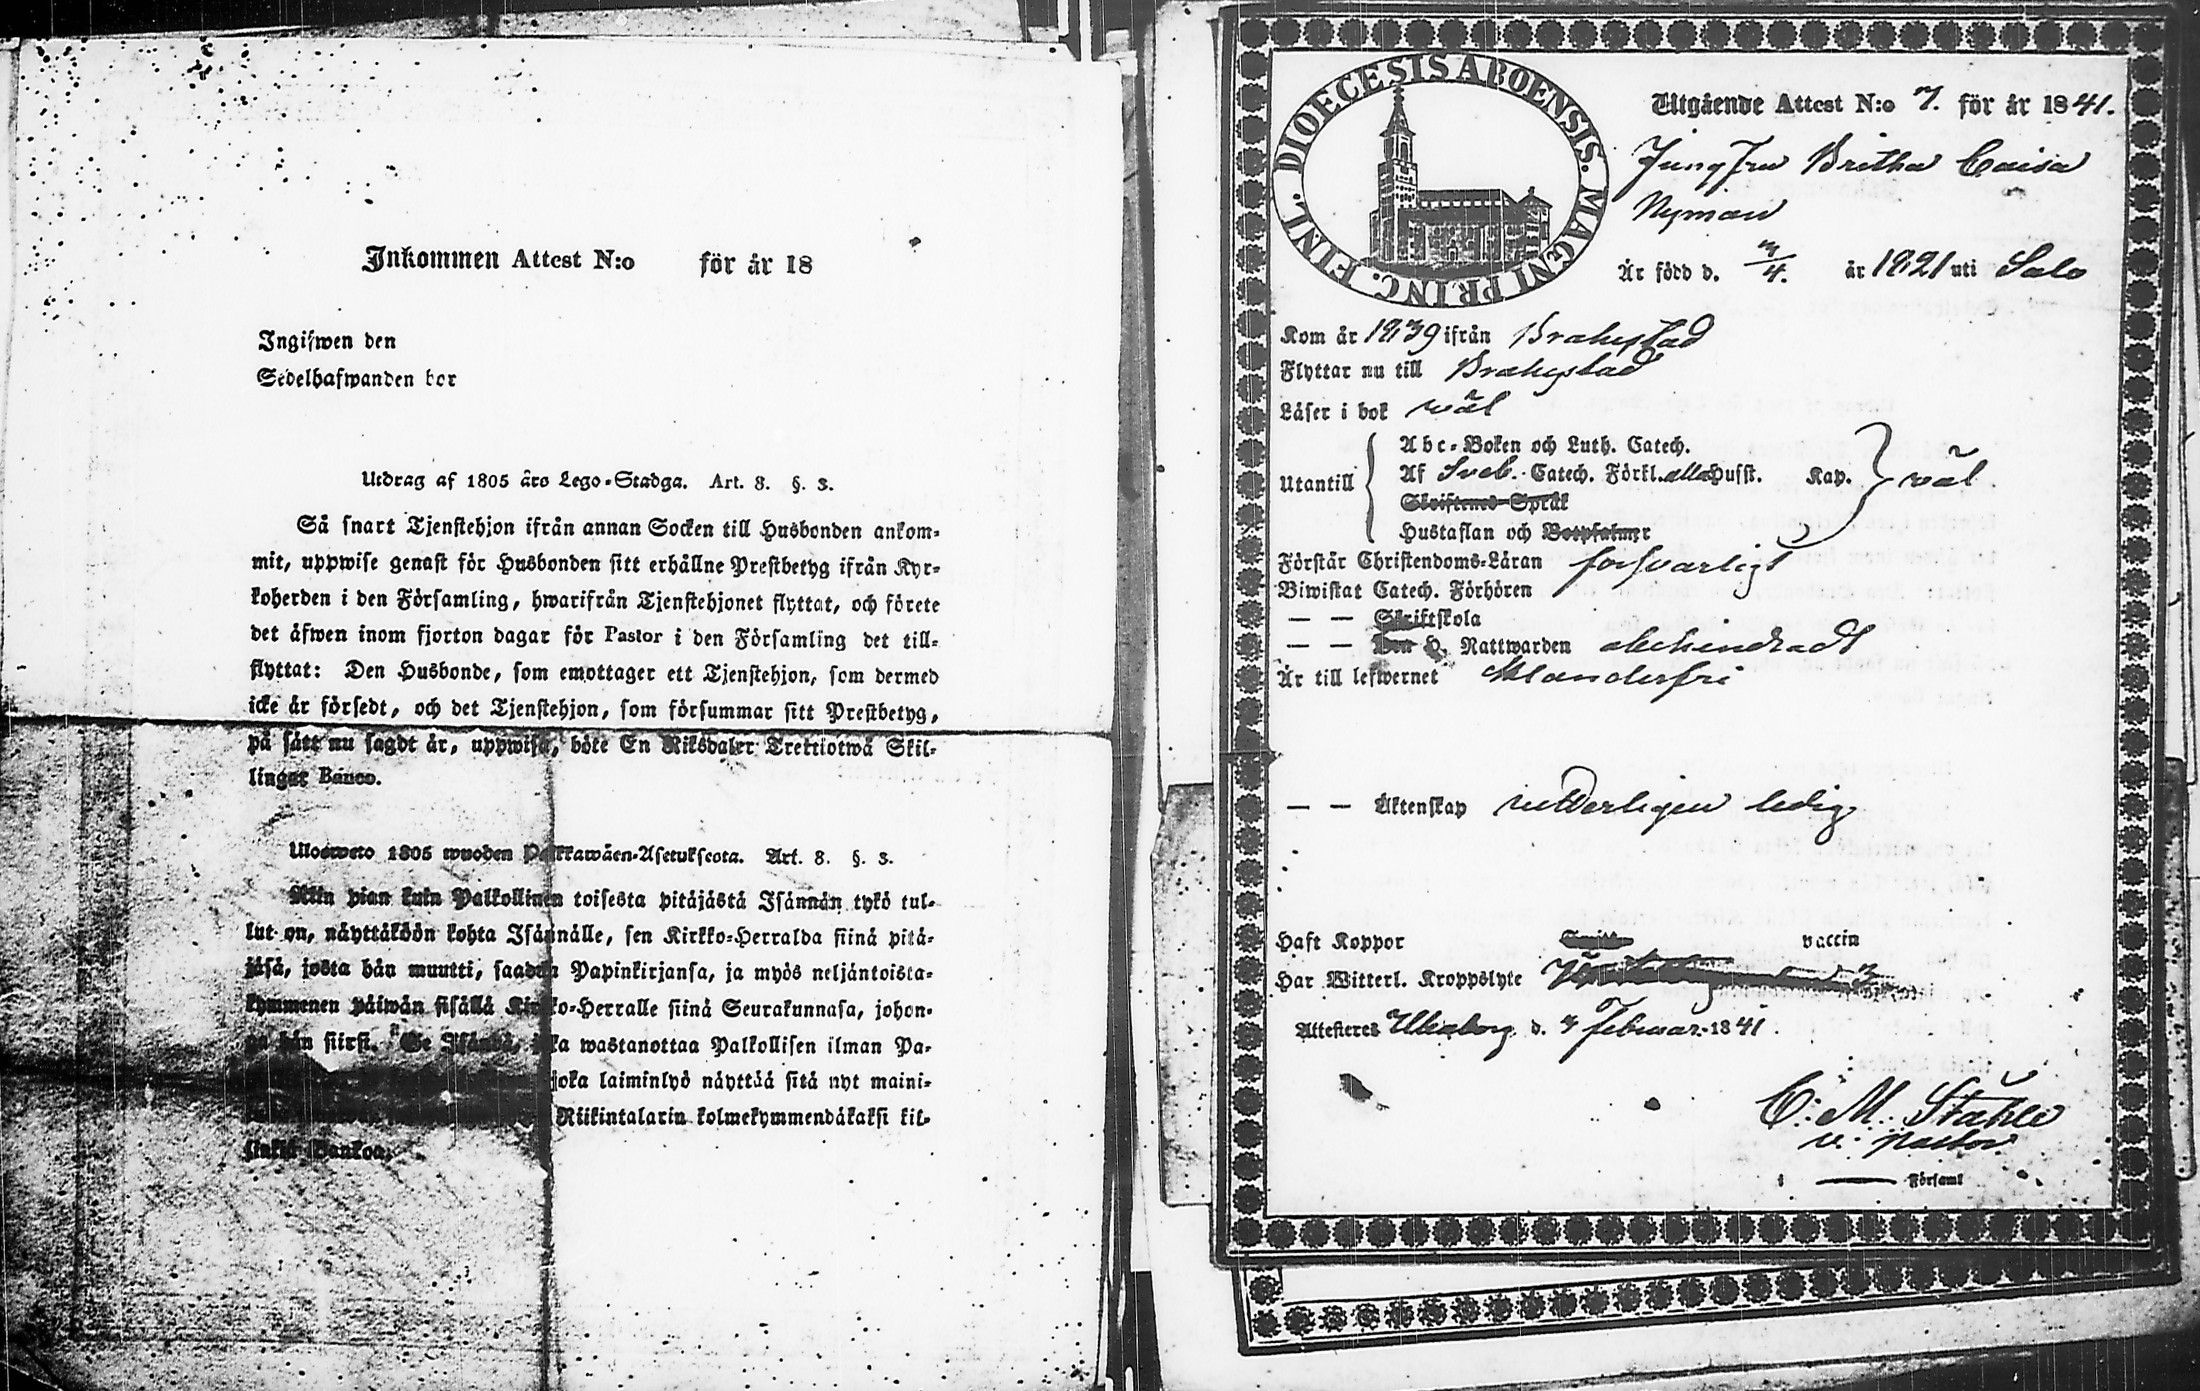 Inkommen Attest N:o för år 18
Ingifwen den
Sedelhafwanden bor
Utdrag af 1805 års Lego-Stadga. Art. 8. §. 3.
Så snart Tjenstehjon ifrån annan Socken till Husbonden ankom-
mit, uppwise genast för Husbonden sitt erhållne Prestbetyg ifrån Kyr-
koherden i den Församling, hwarifrån Tjenstehjonet flyttat, och förete
det äfwen inom fjorton dagar för Pastor i den Församling det till-
flyttat: Den Husbonde, som emottager ett Tjenstehjon, som dermed
icke är försedt, och det Tjenstehjon, som försummar sitt Prestbetyg,
på sätt nu sagdt är, uppwisa, böte En Riksdaler Trettiotwå Skil-
lingar Banco.
Ulosweto 1805 wuoden Palkkawäen-Asetuksesta. Art. 8. §. 3.
Niin pian kuin Palkollinen toisesta pitäjästä Isännän tykö tul-
lut on, näyttäköön kohta Isännälle, sen Kirkko-Herralda siinä pitä-
jäsä, josta hän muutti, saadun Papinkirjansa, ja myös neljäntoista-
kymmenen päiwän sisällä Kirkko-Herralle siinä Seurakunnasa, johon-
ga hän siirsi. Se Isändä, joka wastanottaa Palkollisen ilman Pa-
joka laiminlyö näyttää sitä nyt maini-
Riikintalarin kolmekymmendäkaksi kil-
linkiä Bankoa.
DIOECESIS ABOENSIS. MAGNI PRINC. FINL.
Utgående Attest N:o 7. för år 1841.
Jungfru Britha Caisa
Nyman
Är född d. 3/4. år 1821 uti Salo
Kom år 1839 ifrån Brahestad
Flyttar nu till Brahestad
Läser i bok wäl
Abc-Boken och Luth. Catech.
Utantill Af Sveb. Catech. Förkl. alla Husst. Kap. wäl
Skriftenes Språk
Hustaflan och Botpsalmer
Förstår Christendoms-Läran försvarligt
Biwistat Catech. Förhören
— — Skriftskola
— — Den H. Nattwarden obehindradt
Är till lefwernet klanderfri
— — Äktenskap witterligen ledig
Haft Koppor vaccin
Har Witterl. Kroppslyte
Attesteres Uleaborg d. 3 Februar. 1841.
C. M. Ståhle
v. pastor
i — Församl